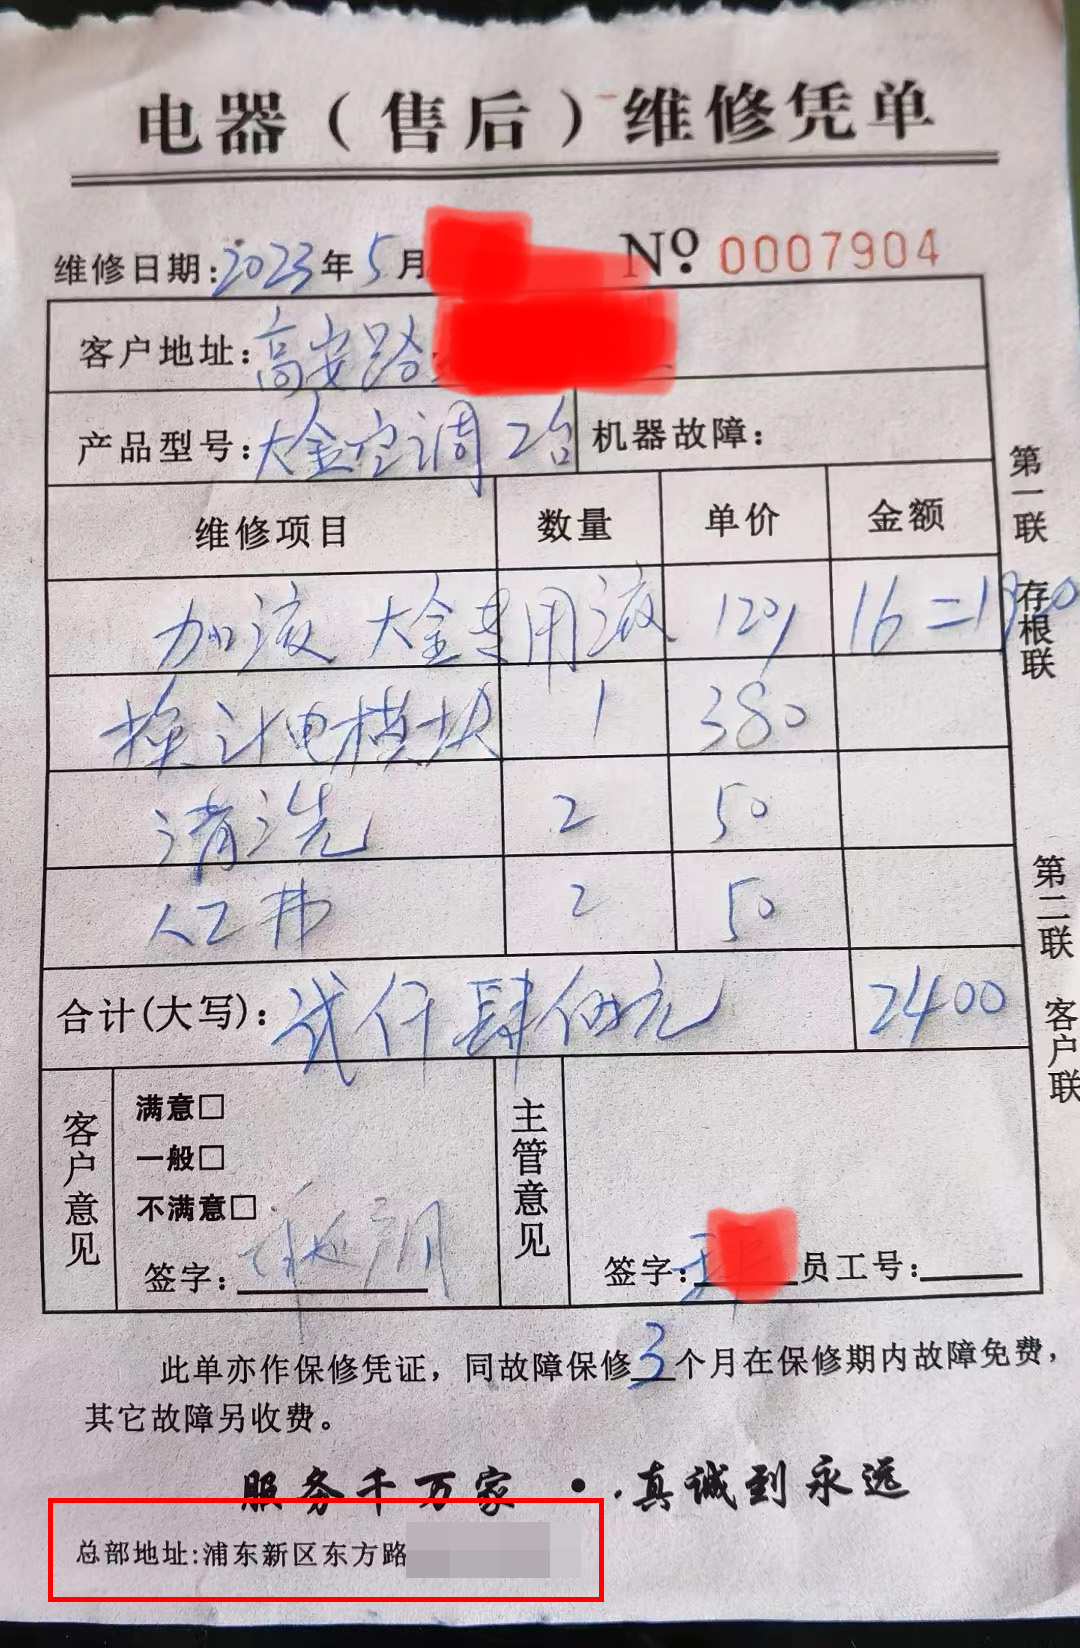 电器（售后）维修凭单
维修日期:2023年5月 No 0007904
客户地址:高安路
产品型号:大金空调 2台 机器故障:
维修项目 数量 单价 金额
加液 大金专用液 120 16=1920
换计电模块 1 380
清洗 2 50
人工费 2 50
合计(大写): 贰仟肆佰元 2400
客户意见
满意□
一般□
不满意□
签字:
主管意见
签字: 员工号:
第一联 存根联
第二联 客户联
此单亦作保修凭证，同故障保修3个月在保修期内故障免费，
其它故障另收费。
服务千万家 · 真诚到永远
总部地址:浦东新区东方路